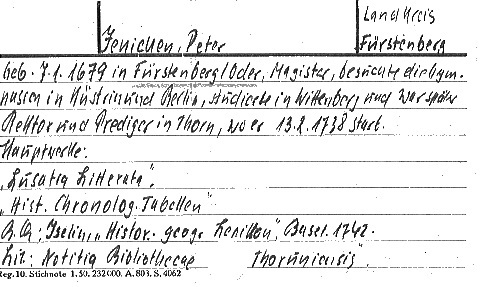 Landkreis
Jenichen, Peter
Fürstenberg
Geb. 7.1. 1679 in Fürstenberg/Oder, Magister, besuchte die Gym-
nasien in Küstrin und Berlin, studierte in Wittenberg und war später
Rektor und Prediger in Thorn, wo er 13.2.1738 starb.
Hauptwerke:
„Lusatia Litterata",
„Hist. Chronolog. Tabellen"
Iselin, „Histor. geogr. Lexikon", Basel. 1742.
Lit: Notitia Bibliothecae Thorunicusis"
Reg. 10. Stichnote 1. 50. 232000. A. 803. S. 4062